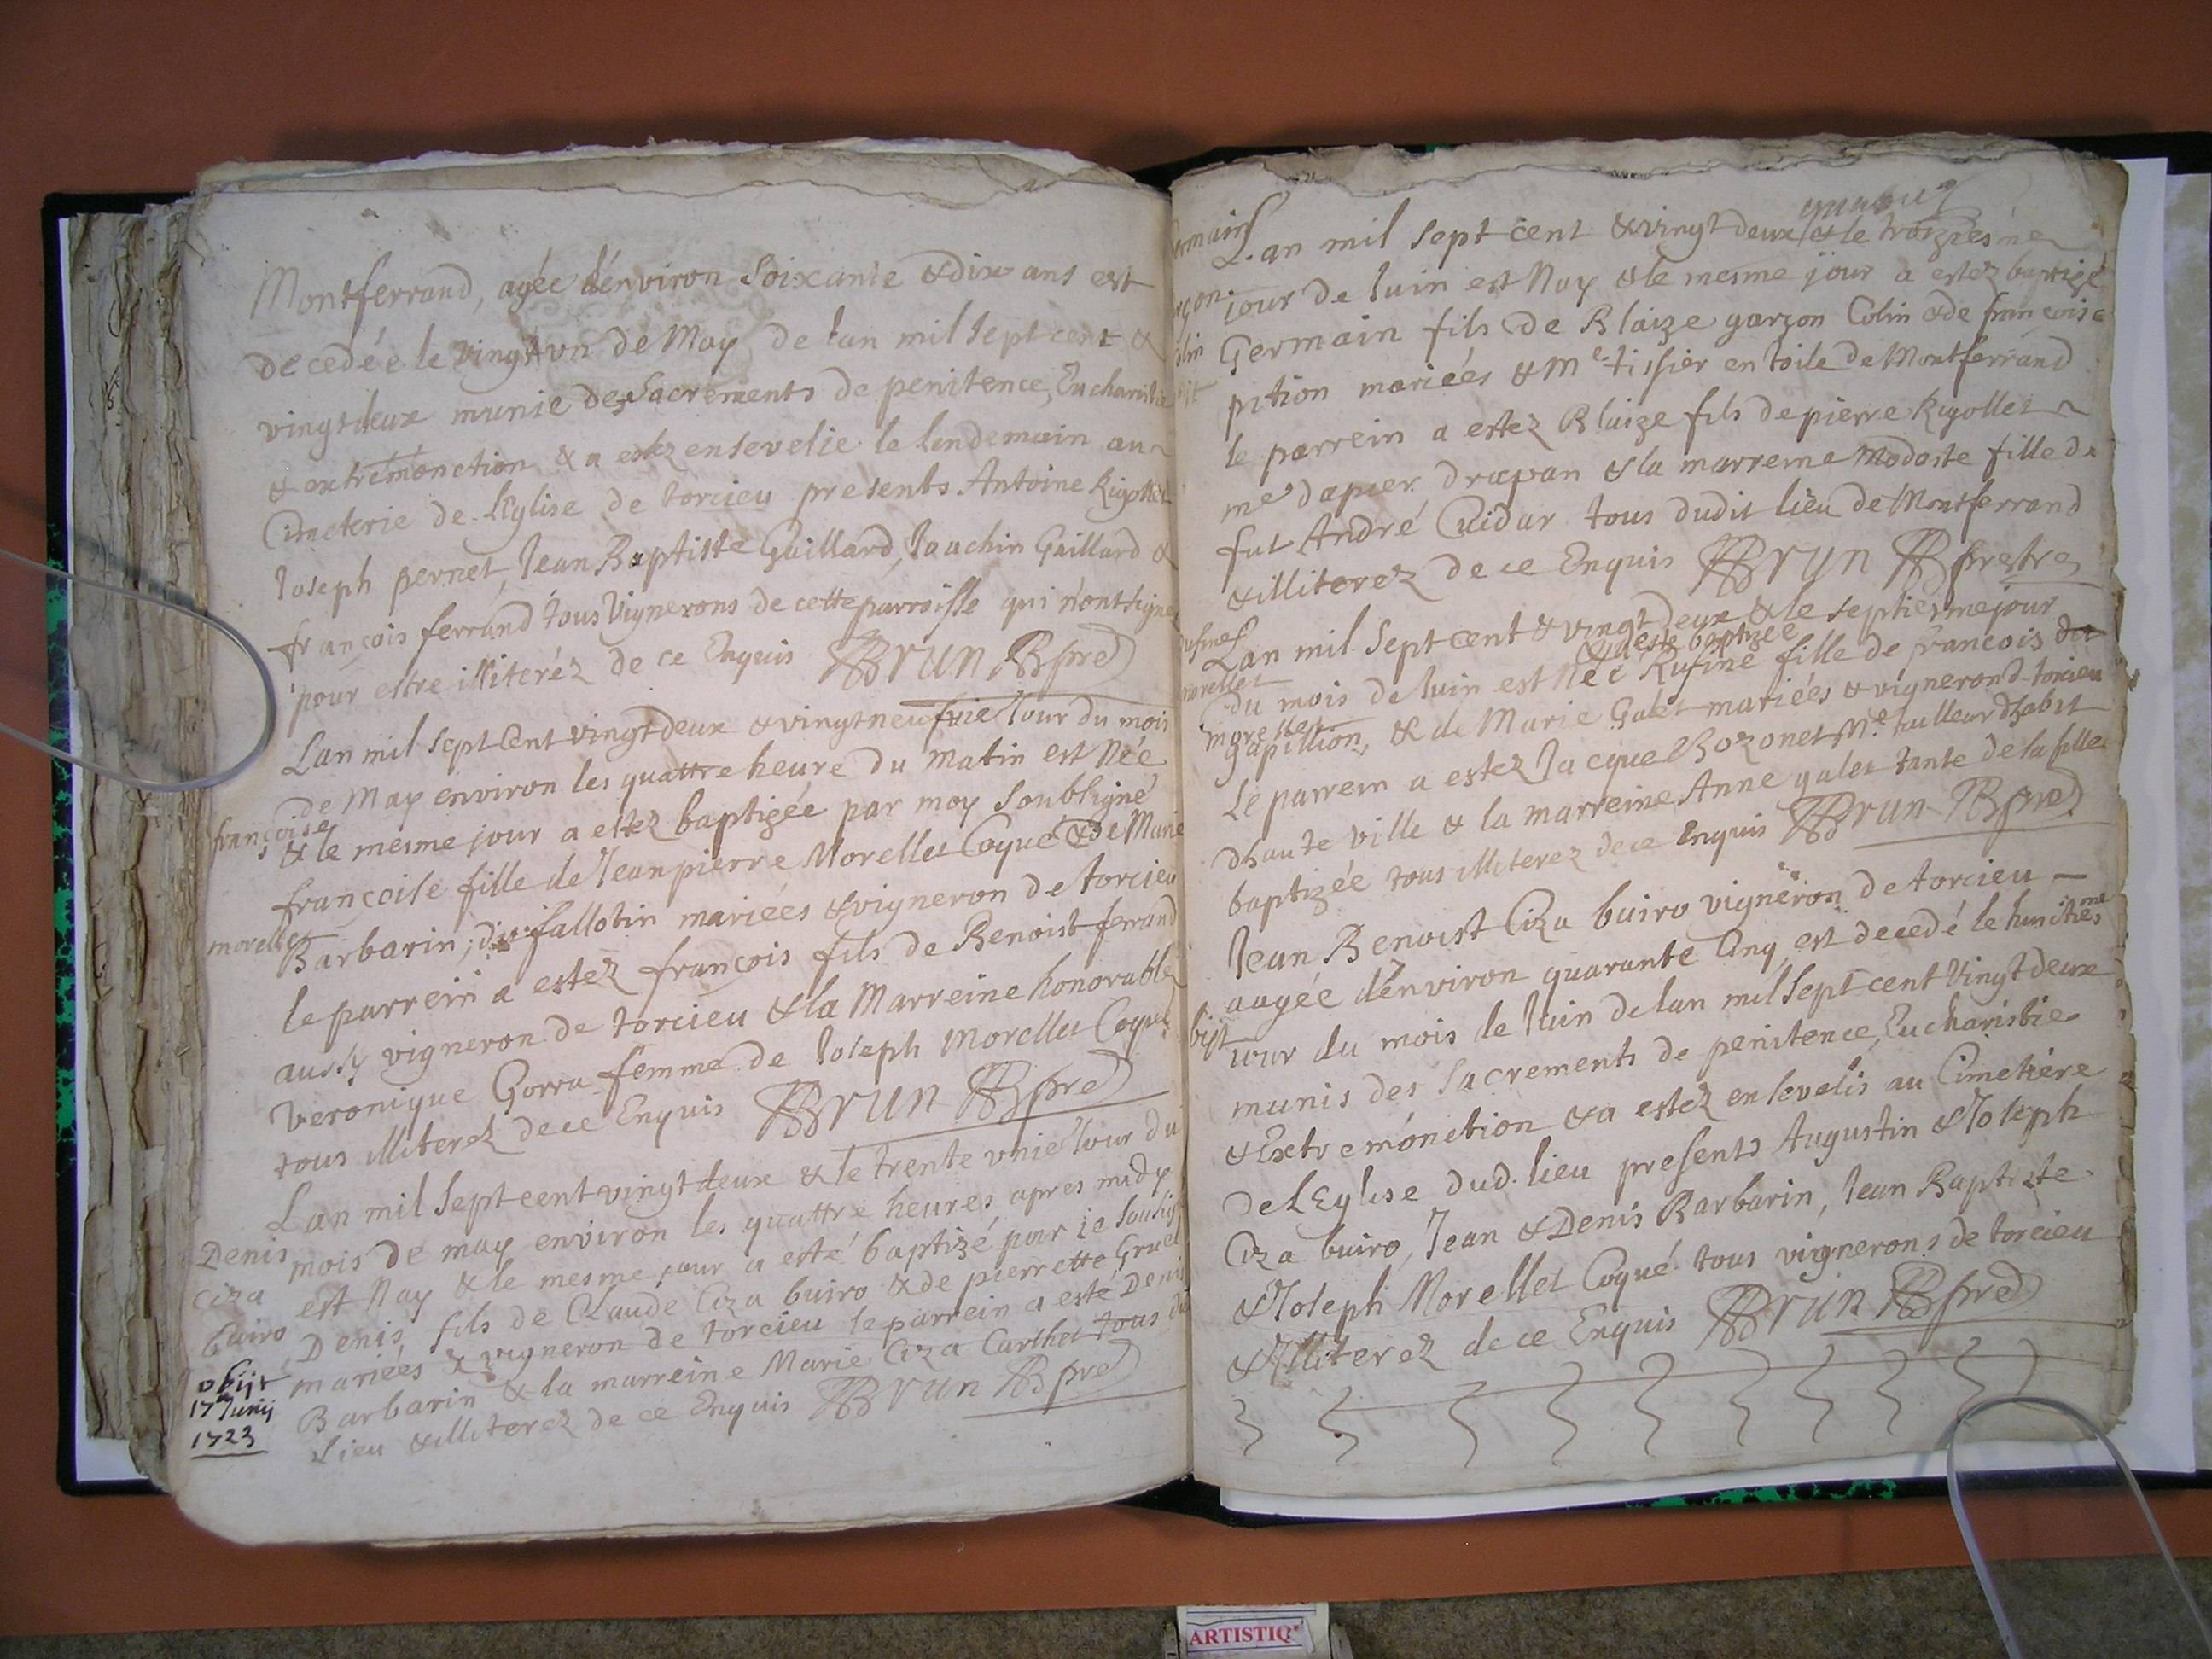 Montferrand, agée d'environ soixante & dix ans est
decedée le vingt un de May de lan mil sept cent &
vingt deux munie des Sacrements de penitence, Eucharistie
& extremonction & a estez ensevelie le lendemain au
Cimeterie de l'Eglise de torcieu presents Antoine Rigollet
Joseph pernet, Jean Baptiste Gaillard, Jauchin Gaillard &
françois ferrand tous Vignerons de cette parroisse qui n'ont signe
pour estre illiteréz de ce Enquis BRUN pre
Lan mil sept Cent vingt deux & vingt neufvie Jour du mois
de May environ les quattre heure du matin est Née
françoise
& le mesme jour a estez baptizée par moy soubsigné
françoise fille de Jean pierre Morellet Coqué & de Marie
morellet
Barbarin, dit fallotin mariées & vigneron de torcieu
le parrein a estez françois fils de Benoist ferrand
aussy vigneron de torcieu & la Marreine honorable
Veronique Gorra femme de Joseph Morellet Coqué
tous illiterez de ce Enquis BRUN pre
Lan mil sept cent vingt deux & le trente vnie Jour du
Denis
mois de may environ les quattre heures apres midy
Ciza
est Nay & le mesme jour a esté baptizé par je sousig
buiro
Denis fils de Claude Ciza buiro & de pierrette Gruel
mariées & vigneron de torcieu le parrein a esté Denis
obijt
17 Junij
1723
Barbarin & la marreine Marie Ciza Carthet tous du
Lieu & illiterez de ce Enquis BRUN pre
Lan mil sept cent & vingt deux & le troiziesme
jour de Juin est Nay & le mesme jour a estez baptizé
Germain fils de Blaize garçon Colin & de françoise
pition mariées & Me tissier en toile de Montferrand
le parrein a estez Blaize fils de pierre Rigollet
me dapier drapan & la marreine Modeste fille de
fut André Cuidar tous dudit lieu de Montferrand
& illiterez de ce Enquis BRUN prestre
Lan mil sept cent & vingt Deux & le septiesme jour
& a esté baptizée
du mois de Juin est Née Rufine fille de francois
morellet
morellet
papillion, & de Marie Galet mariées & vignerond torcieu
Le parrein a estez Jacque Bozonet Me tailleur dhabit
dhaute ville & la marreine Anne galet tante de la fille
baptizée tous illiterez de ce Enquis BRUN pre
Jean Benoist Ciza buiro vigneron de torcieu
aagée d'environ quarante Cinq, est decedé le huictiesme
bijt
jour du mois le Juin de lan mil sept cent vingt deux
munis des Sacrements de penitence, Eucharistie
& Extremonction & a estez ensevelis au Cimetiere
de l'Eglise dud. lieu presents Augustin & Joseph
Ciza buiro, Jean & Denis Barbarin, Jean Baptiste
& Joseph Morellet Coqué tous vignerons de torcieu
& Illiterez de ce Enquis BRUN pre
ARTISTIQ